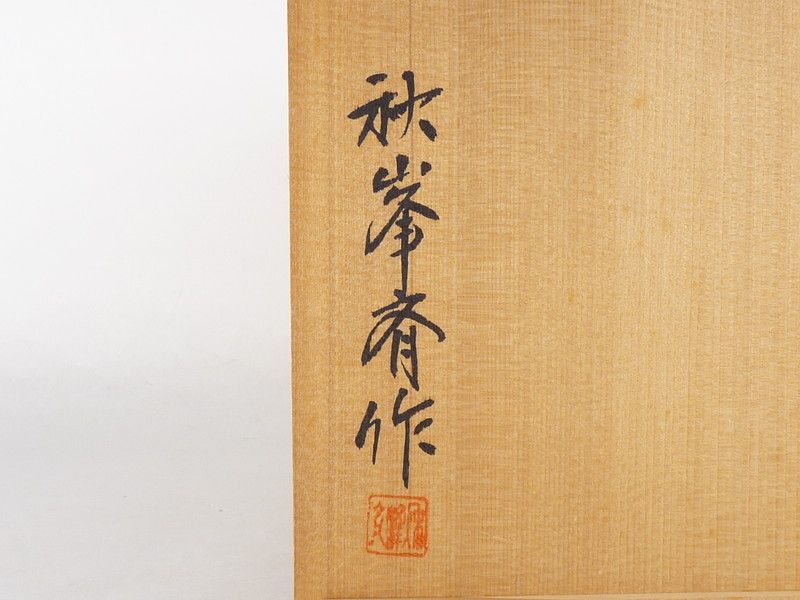 秋峯斎作